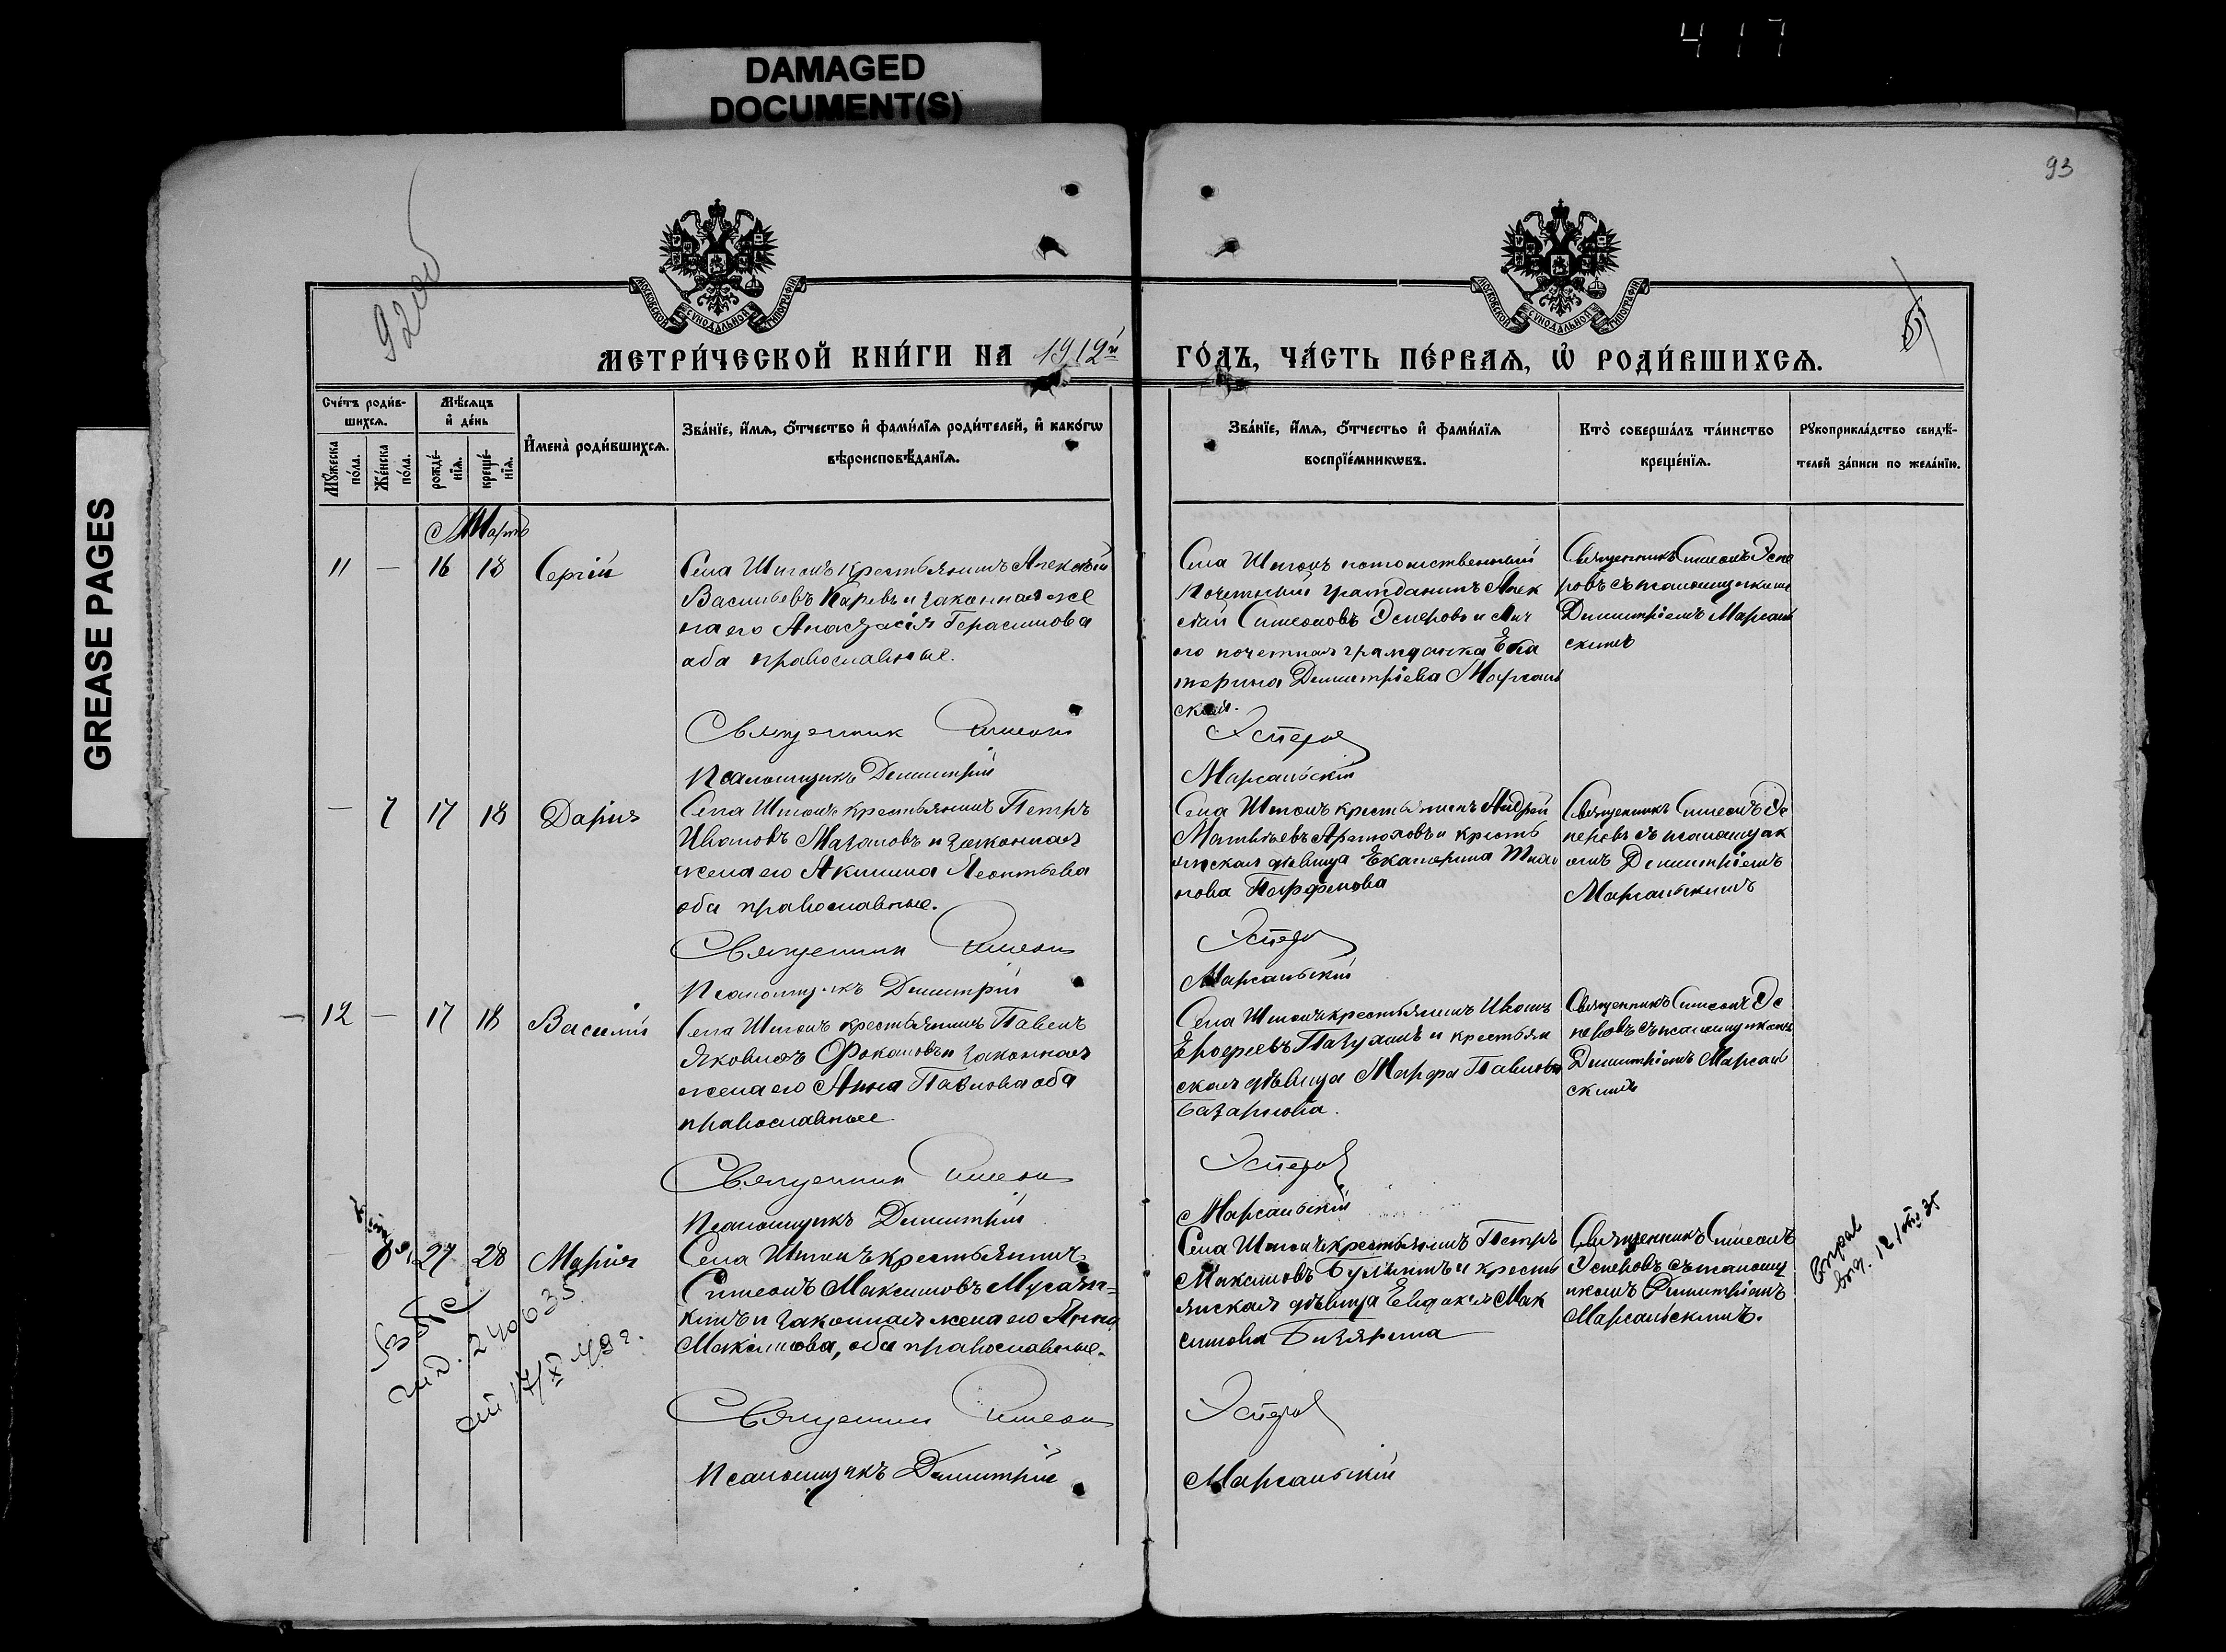 417
DAMAGED
DOCUMENT(S)
GREASE PAGES
93
МОСКОВСКОЙ СѴНОДАЛЬНОЙ ТИПОГРАФІИ
МОСКОВСКОЙ СѴНОДАЛЬНОЙ ТИПОГРАФІИ
МЕТРИ́ЧЕСКОЙ КНИ́ГИ НА 1912й
ГО́ДЪ, ЧА́СТЬ ПЕ́РВАЯ, Ѡ РОДИ́ВШИХСЯ.
Сче́тъ роди́в-
шихся.
Мꙋ́жеска
по́ла.
Же́нска
по́ла.
Мѣ́сяцъ
и де́нь
рожде́-
нїя.
креще́-
нїя.
И҆мена̀ роди́вшихся.
Зва́нїе, и҆́мя, ѻ҆́тчество и҆ фами́лїя роди́телей, и҆ како́гѡ
вѣроисповѣ́данїя.
Зва́нїе, и҆́мя, ѻ҆́тчество и҆ фами́лїя
воспрїе́мникѡвъ.
Кто̀ соверша́лъ та́инство
креще́нїя.
Рꙋкоприкла́дство свидѣ́-
телей за́писи по жела́нїю.
Мартъ
11 — 16 18 Сергій
Села Шигонъ крестьянинъ Алексѣй
Васильевъ Каревъ и законная же
на его Анастасія Герасимова
оба православные.
Священник Симеон
Псаломщикъ Димитрій
Села Шигонъ потомственный
почетный гражданинъ Алек
сѣй Симеоновъ Эсперовъ и лич
ого почетная гражданка Ека
терина Димитріева Марсаль
ская.
Эсперов
Марсальскій
Священникъ Симеонъ Эспе
ровъ съ псаломщикомъ
Димитріемъ Марсаль
скимъ
— 7 17 18 Дарія
Села Шигонъ крестьянинъ Петръ
Ивановъ Мазановъ и законная
жена его Акилина Леонтьева
оба православные.
Священник Симеон
Псаломщикъ Димитрій
Села Шигонъ крестьянинъ Андрей
Матвѣевъ и кресть
янская дѣвица Екатерина
Парфенова
Эсперов
Марсальскій
Священникъ Симеонъ Эс
перовъ съ псаломщик
омъ Димитріемъ
Марсальскимъ
12 — 17 18 Василій
Села Шигонъ крестьянинъ Павелъ
Яковлевъ Фокановъ и законная
жена его Анна Павлова оба
православные
Священник Симеон
Псаломщикъ Димитрій
Села Шигонъ крестьянинъ Иванъ
Ерофеевъ и крестьян
ская дѣвица Марфа Павлова
Базарнова.
Эсперов
Марсальскій
Священникъ Симеонъ Эс
перовъ съ псаломщикомъ
Димитріемъ Марсаль
скимъ
8 27 28 Марія
Села Шигонъ крестьянинъ
Симеонъ Максимовъ
кинъ и законная жена его Анна
Максимова, оба православные.
Священник Симеон
Псаломщикъ Димитрій
Села Шигонъ крестьянинъ Петръ
Максимовъ и кресть
янская дѣвица Евдокія Мак
симова
Эсперов
Марсальскій
Священникъ Симеонъ
Эсперовъ съ псаломщ
икомъ Димитріемъ
Марсальскимъ.
240635
17/X 49 г.